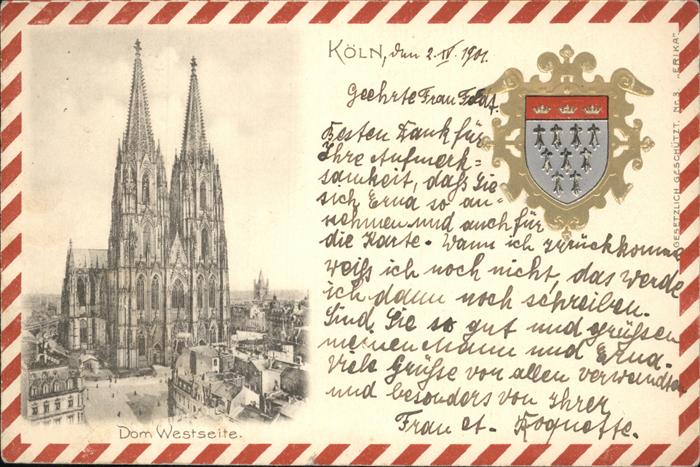 KÖLN, den 2. IV. 1901.
Geehrte Frau
Besten Dank für
Ihre Aufmerk=
samkeit, daß Sie
sich Erna so an=
nehmen und auch für
die Karte. Wann ich zurückkomme
weiß ich noch nicht, das werde
ich dann noch schreiben.
Sind Sie so gut und grüßen
meinen Mann und Erna.
Viele Grüße von allen verwandten
und besonders von Ihrer
Frau
Dom Westseite.
GESETZLICH GESCHÜTZT. Nr. 3 "ERIKA"